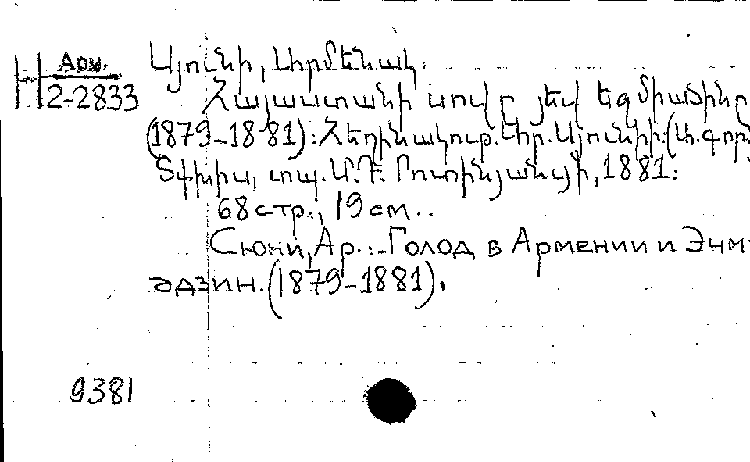 Арм.
Н 2-2833
Սյունի, Արմենակ.
Հայաստանի սովը յեվ Եզմիածինը
(1879-1881): Հեղինակութ. Ար. Սյունիի. (Ա. գոր.
Տփխիս, տպ. Մ. Դ. Ռոտինյանցի, 1881:
68 стр., 19 см..
Сюни, Ар.:-Голод в Армении и Эчм
эдзин. (1879-1881).
9381